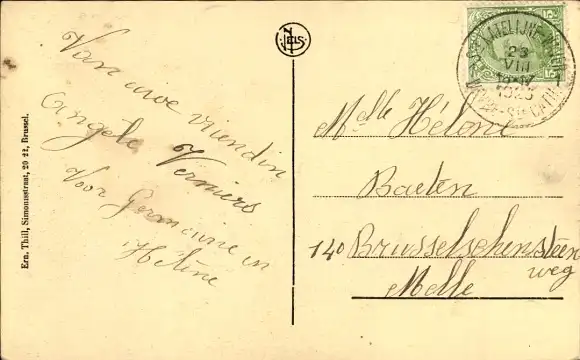 Van uwe vriendin
Angèle Verniers
Voor Germaine en
Hélène
Ern. Thill, Simonisstraat, 20 22, Brussel.
NELS
23
VIII
1923
Melle Hélène
Baeten
140 Brusselschensteen
weg
Melle